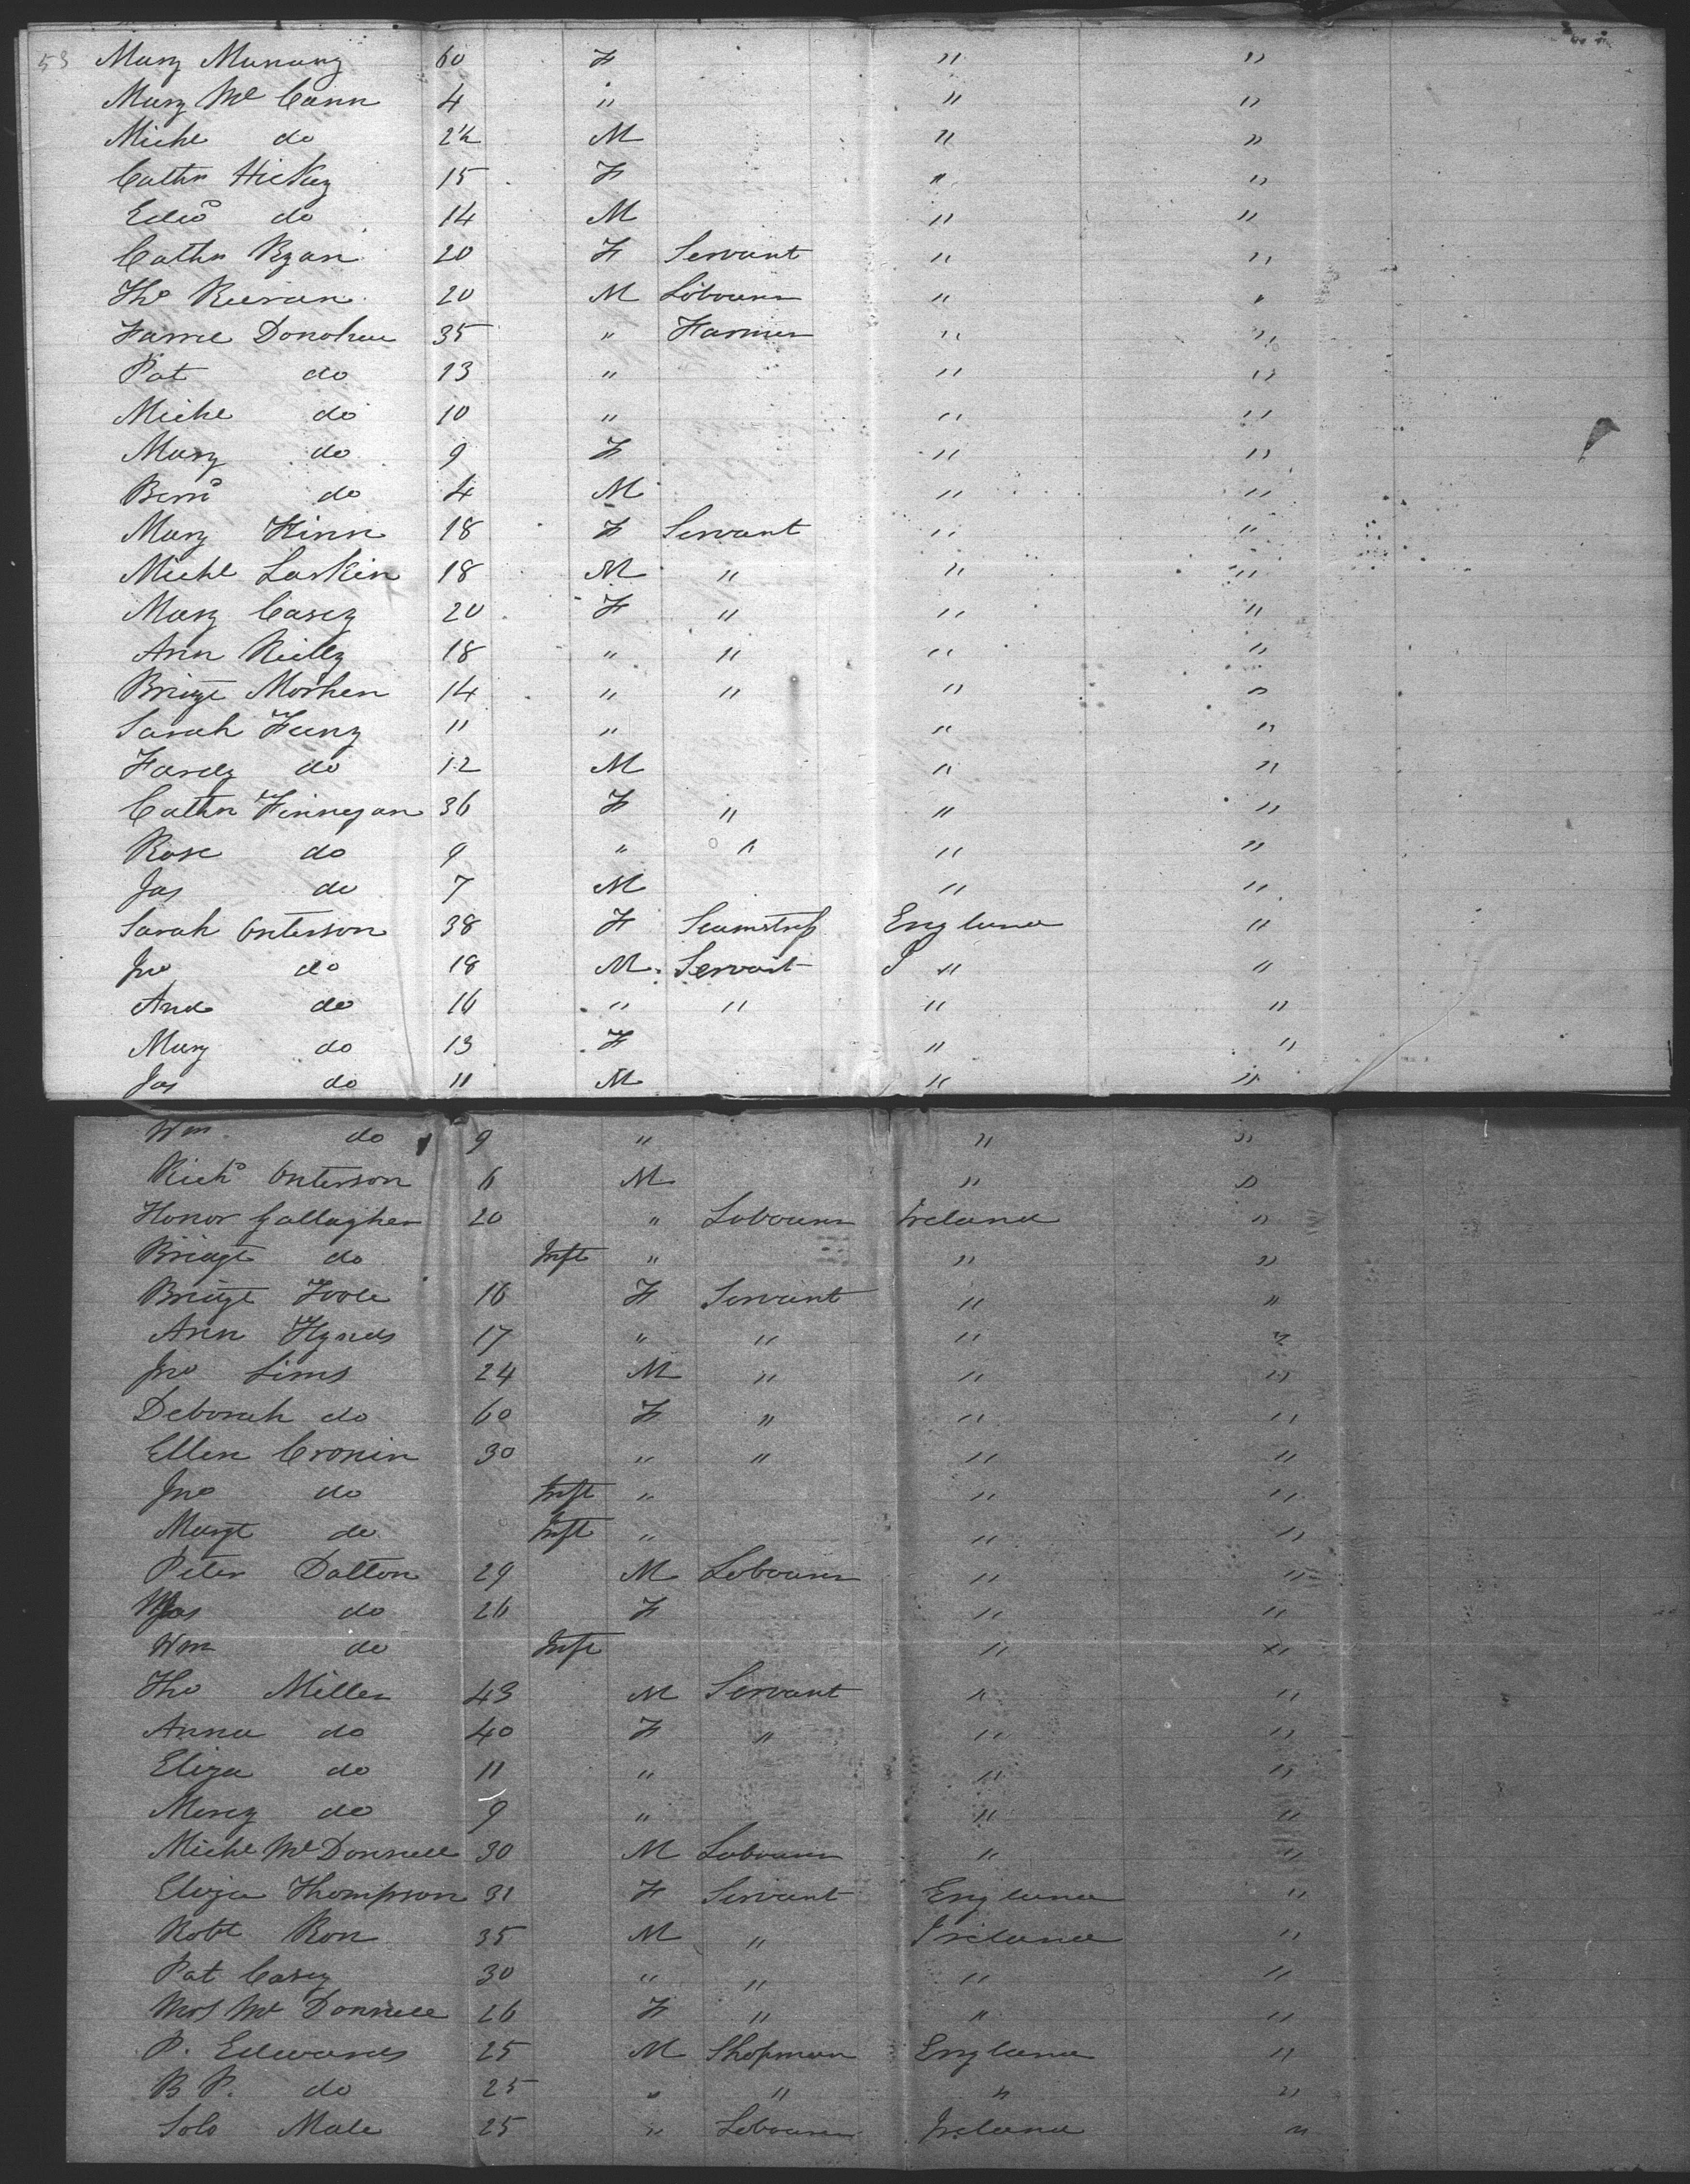 53 Mary Munany 60 F " "
Mary Mc Cann 4 " " "
Michl do 2½ M " "
Cathn Hickey 15 F " "
Edwd do 14 M " "
Cathn Ryan 20 F Servant " "
Tho 20 M Labourer " "
Donohue 35 " Farmer " "
Pat do 13 " " "
Michl do 10 " " "
Mary do 9 F " "
Bernd do 4 M " "
Mary Finn 18 F Servant " "
Michl Larkin 18 M " " "
Mary Casey 20 F " " "
Ann Reilly 18 " " " "
Bridgt Morhen 14 " " " "
Sarah Feeny 11 " " "
Fardy do 12 M " "
Cathn Finnegan 36 F " " "
Rose do 9 " " " "
Jas do 7 M " "
Sarah Onterson 38 F Seamstress England "
Jno do 18 M Servant " "
And do 16 " " " "
Mary do 13 F " "
Jas do 11 M " "
Wm do 9 " " "
Richd Onterson 6 M " "
Honor Gallagher 20 " Labourer Ireland "
Bridgt do Inft " " "
Bridgt Toole 16 F Servant " "
Ann Hynes 17 " " " "
Jno Sims 24 M " " "
Deborah do 60 F " " "
Ellen Cronin 30 " " " "
Jno do Inft " " "
Margt do Inft " " "
Peter Dalton 29 M Labourer " "
do 26 F " "
Wm do Inft " "
Tho Miller 43 M Servant " "
Anna do 40 F " " "
Eliza do 11 " " "
Mercy do 9 " " "
Michl Mc Donnell 30 M Labourer " "
Eliza Thompson 31 F Servant England "
Robt Ron 35 M " Ireland "
Pat Casey 30 " " " "
Mrs Mc Donnell 26 F " " "
P. Edwards 25 M Shopman England "
B P. do 25 " " " "
Solo Male 25 " Labourer Ireland "